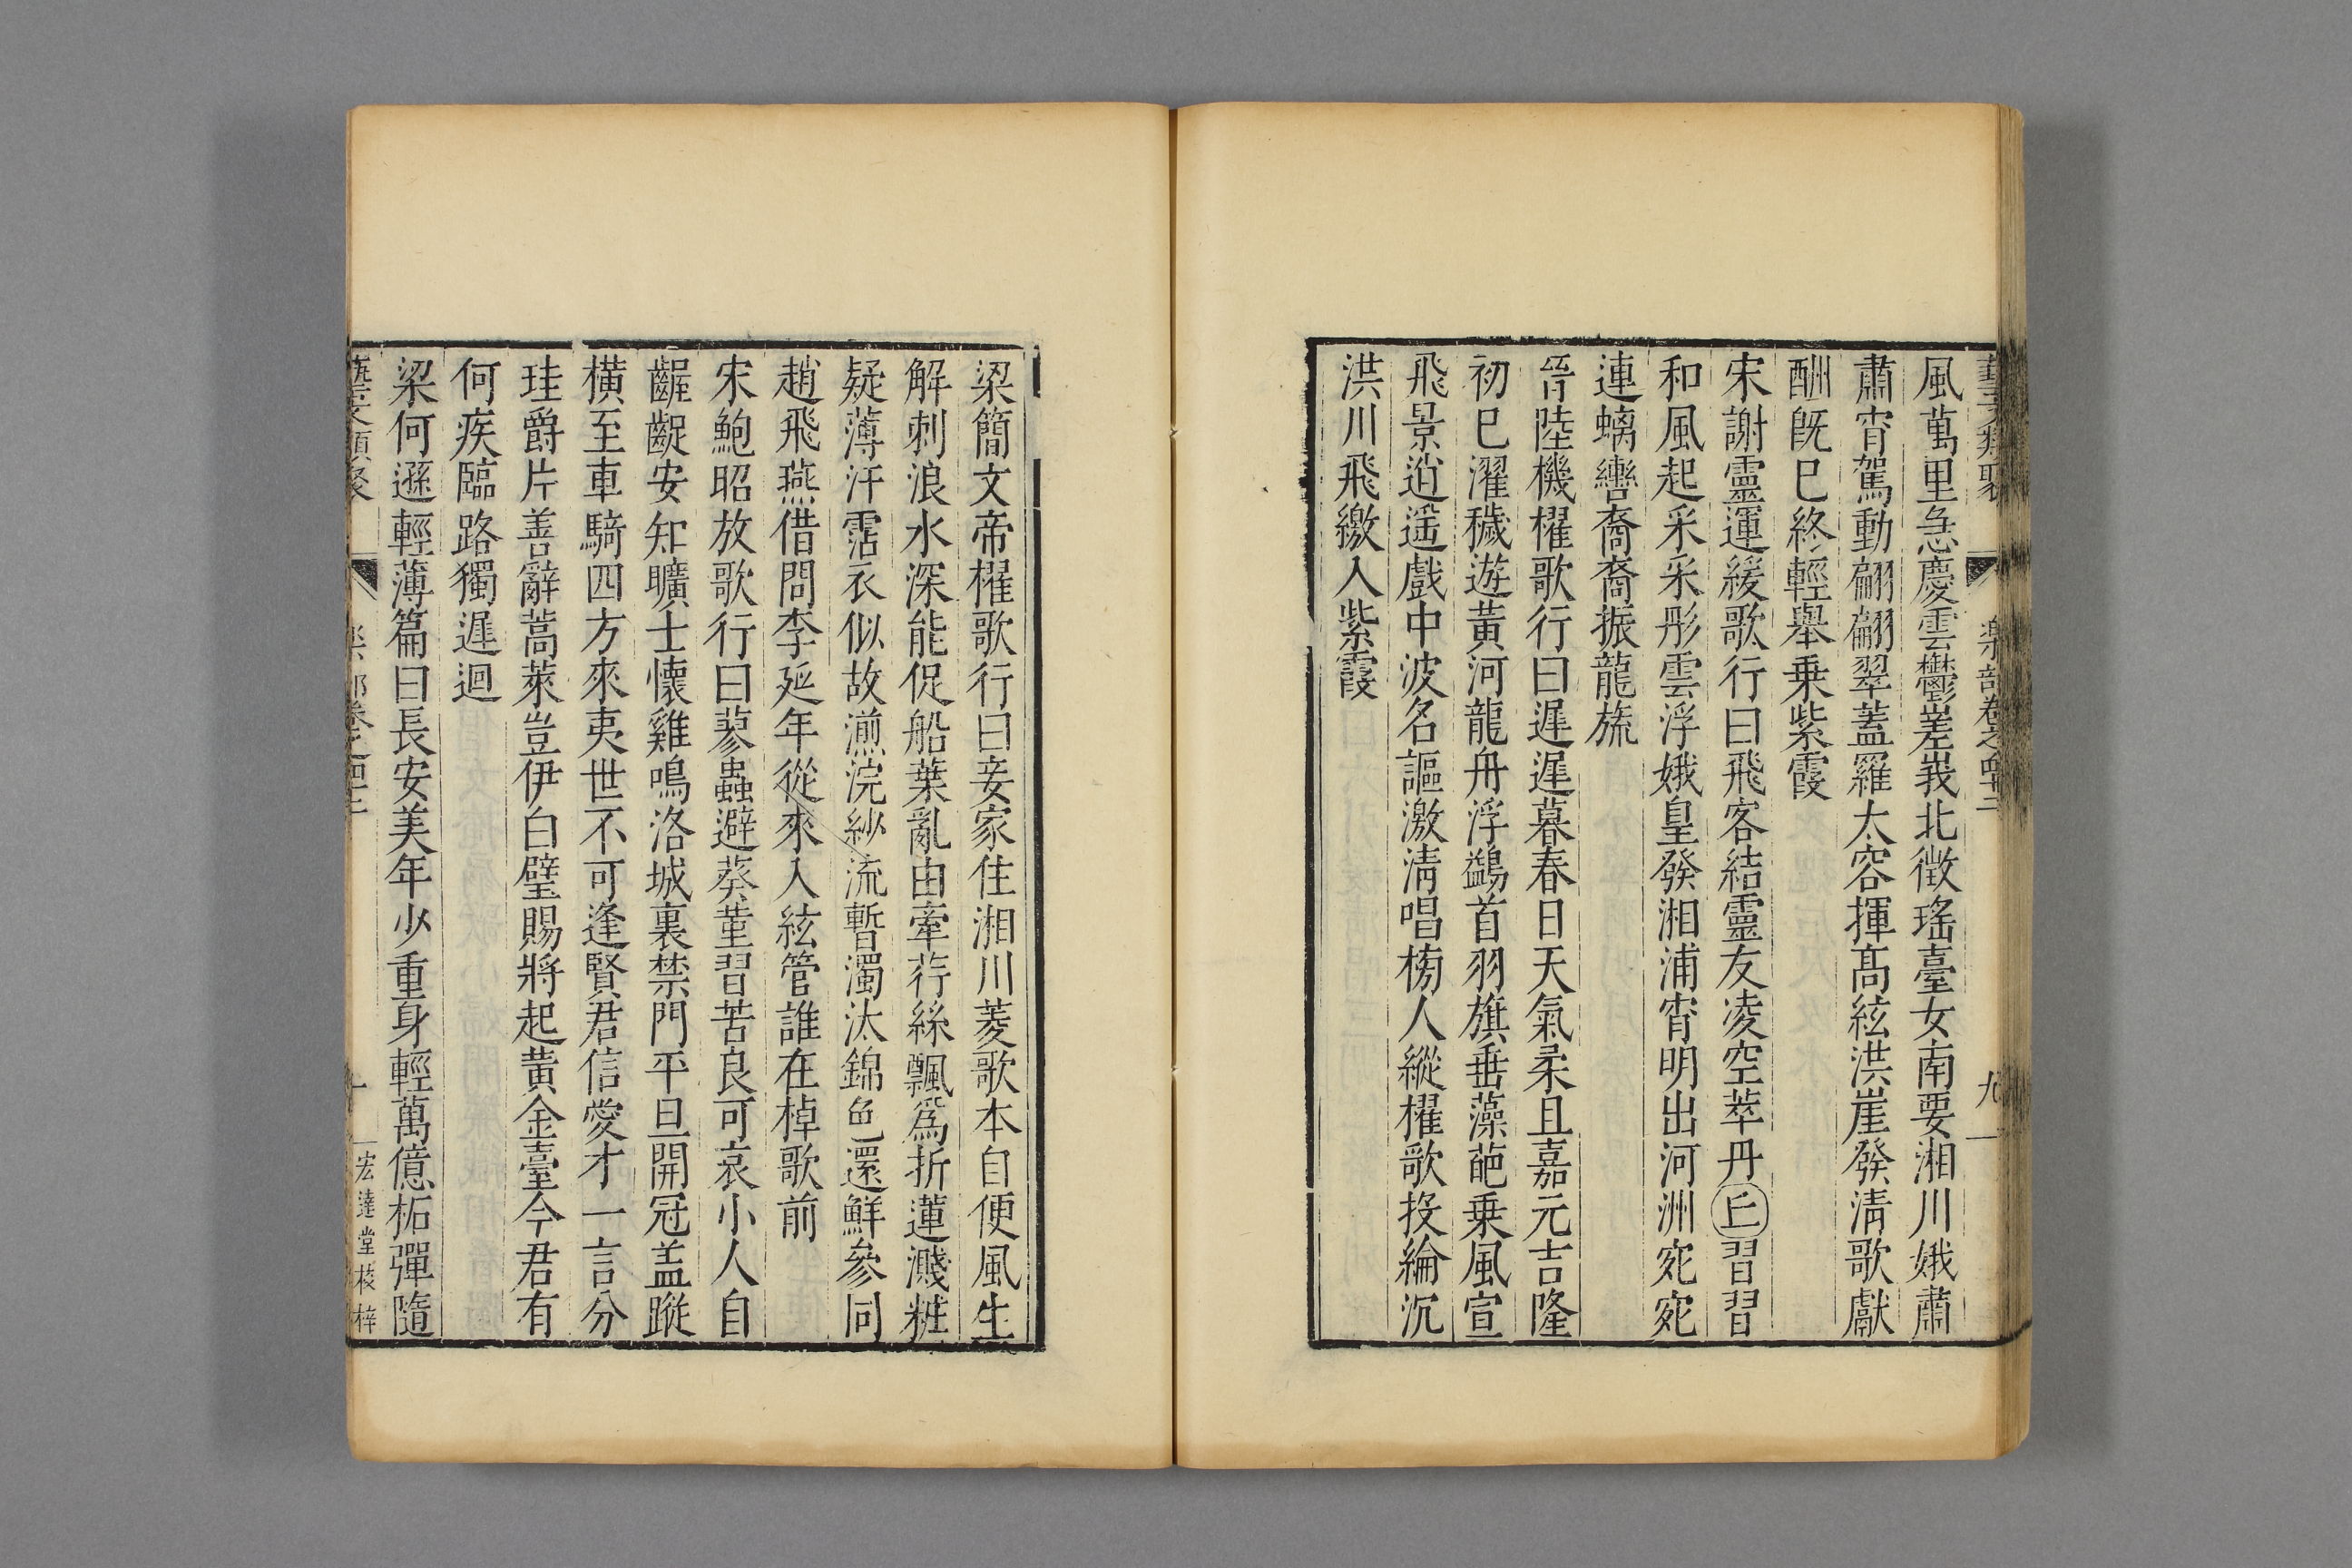 風萬里急慶雲鬱嵳峩北徵瑤臺女南要湘川娥肅
肅宵駕動翩翩翠蓋羅太容揮髙絃洪崖發清歌獻
酬旣巳終輕舉乗紫霞
宋謝靈運緩歌行曰飛客結靈友凌空萃丹丘習習
和風起采采彤雲浮娥皇發湘浦宵明出河洲宛宛
連螭轡裔裔振龍旒
晉陸機櫂歌行曰遲遲暮春日天氣柔且嘉元吉隆
初巳濯穢遊黃河龍舟浮鷁首羽旗垂藻葩乗風宣
飛景逍遥戲中波名謳激清唱榜人縱櫂歌投綸沉
洪川飛繳入紫霞
藝文類聚
樂部卷之四十二
九
梁簡文帝櫂歌行曰妾家住湘川菱歌本自便風生
解刺浪水深能促船葉亂由牽荇絲飄爲折蓮濺粧
疑薄汗霑衣似故湔浣紗流暫濁汰錦色還鮮參同
趙飛燕借問李延年從來入絃管誰在棹歌前
宋鮑昭放歌行曰蓼蟲避葵菫習苦良可哀小人自
齷齪安知曠士懷雞鳴洛城裏禁門平旦開冠盖蹤
橫至車騎四方來夷世不可逢賢君信愛才一言分
珪爵片善辭蒿萊豈伊白璧賜將起黄金臺今君有
何疾臨路獨遲迴
梁何遜輕薄篇曰長安美年少重身輕萬億柘彈隨
藝文類聚
樂部卷之四十二
十
宏達堂校梓